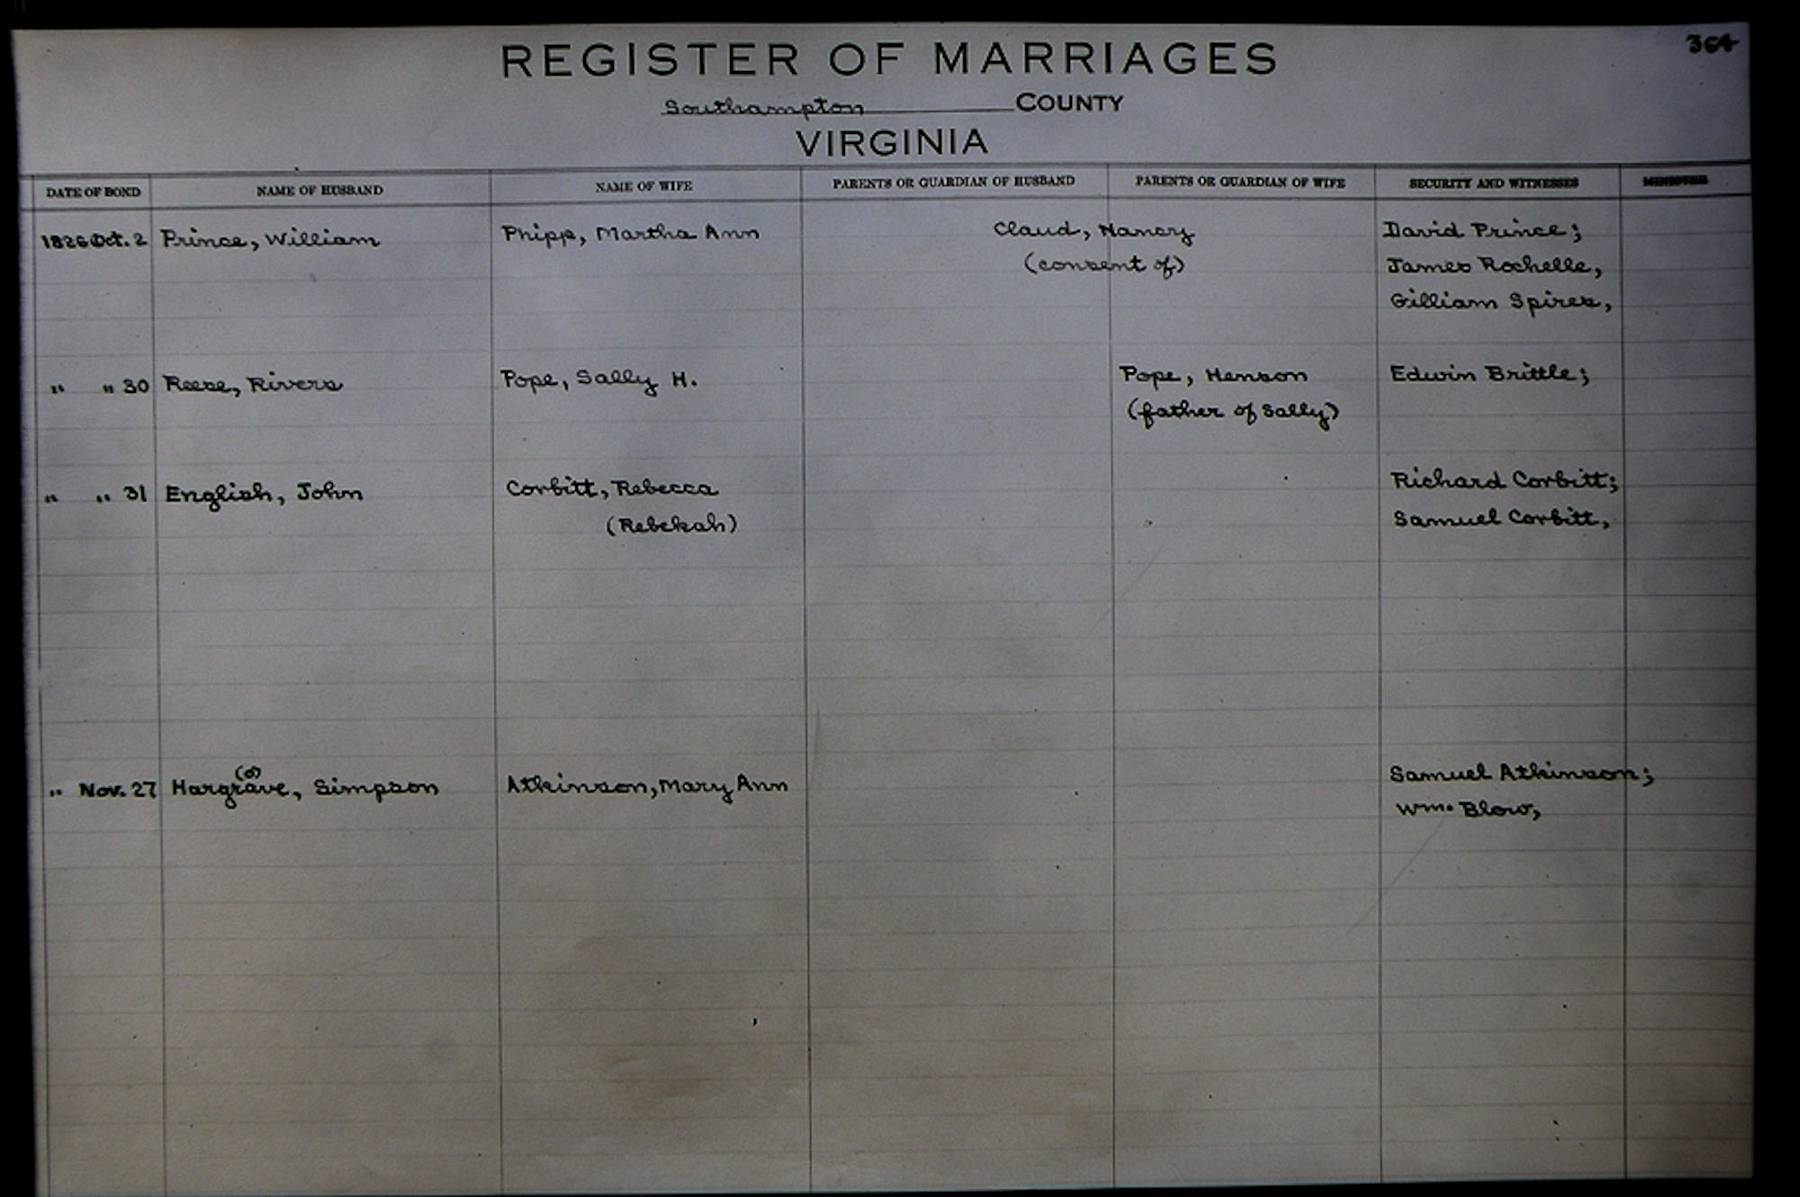 364
REGISTER OF MARRIAGES
Southampton COUNTY
VIRGINIA
DATE OF BOND NAME OF HUSBAND NAME OF WIFE PARENTS OR GUARDIAN OF HUSBAND PARENTS OR GUARDIAN OF WIFE SECURITY AND WITNESSES MINISTER
1826 Oct. 2 Prince, William Phipp, Martha Ann Claud, Nancy David Prince;
(consent of) James Rochelle,
Gilliam Spires,
" " 30 Reese, Rivers Pope, Sally H. Pope, Henson Edwin Brittle;
(father of Sally)
" " 31 English, John Corbitt, Rebecca Richard Corbitt;
(Rebekah) Samuel Corbitt,
" Nov. 27 Hargrave, (o) Simpson Atkinson, Mary Ann Samuel Atkinson;
Wm. Blow,